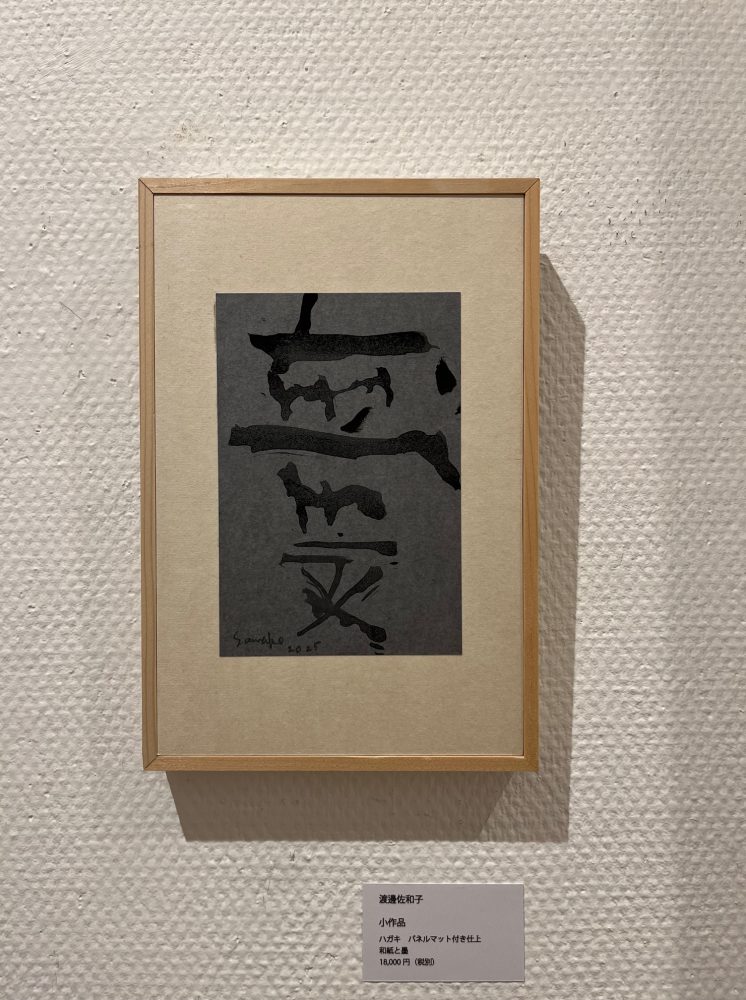 Sawako
2025
渡邊佐和子
小作品
ハガキ　パネルマット付き仕上
和紙と墨
18,000 円（税別）